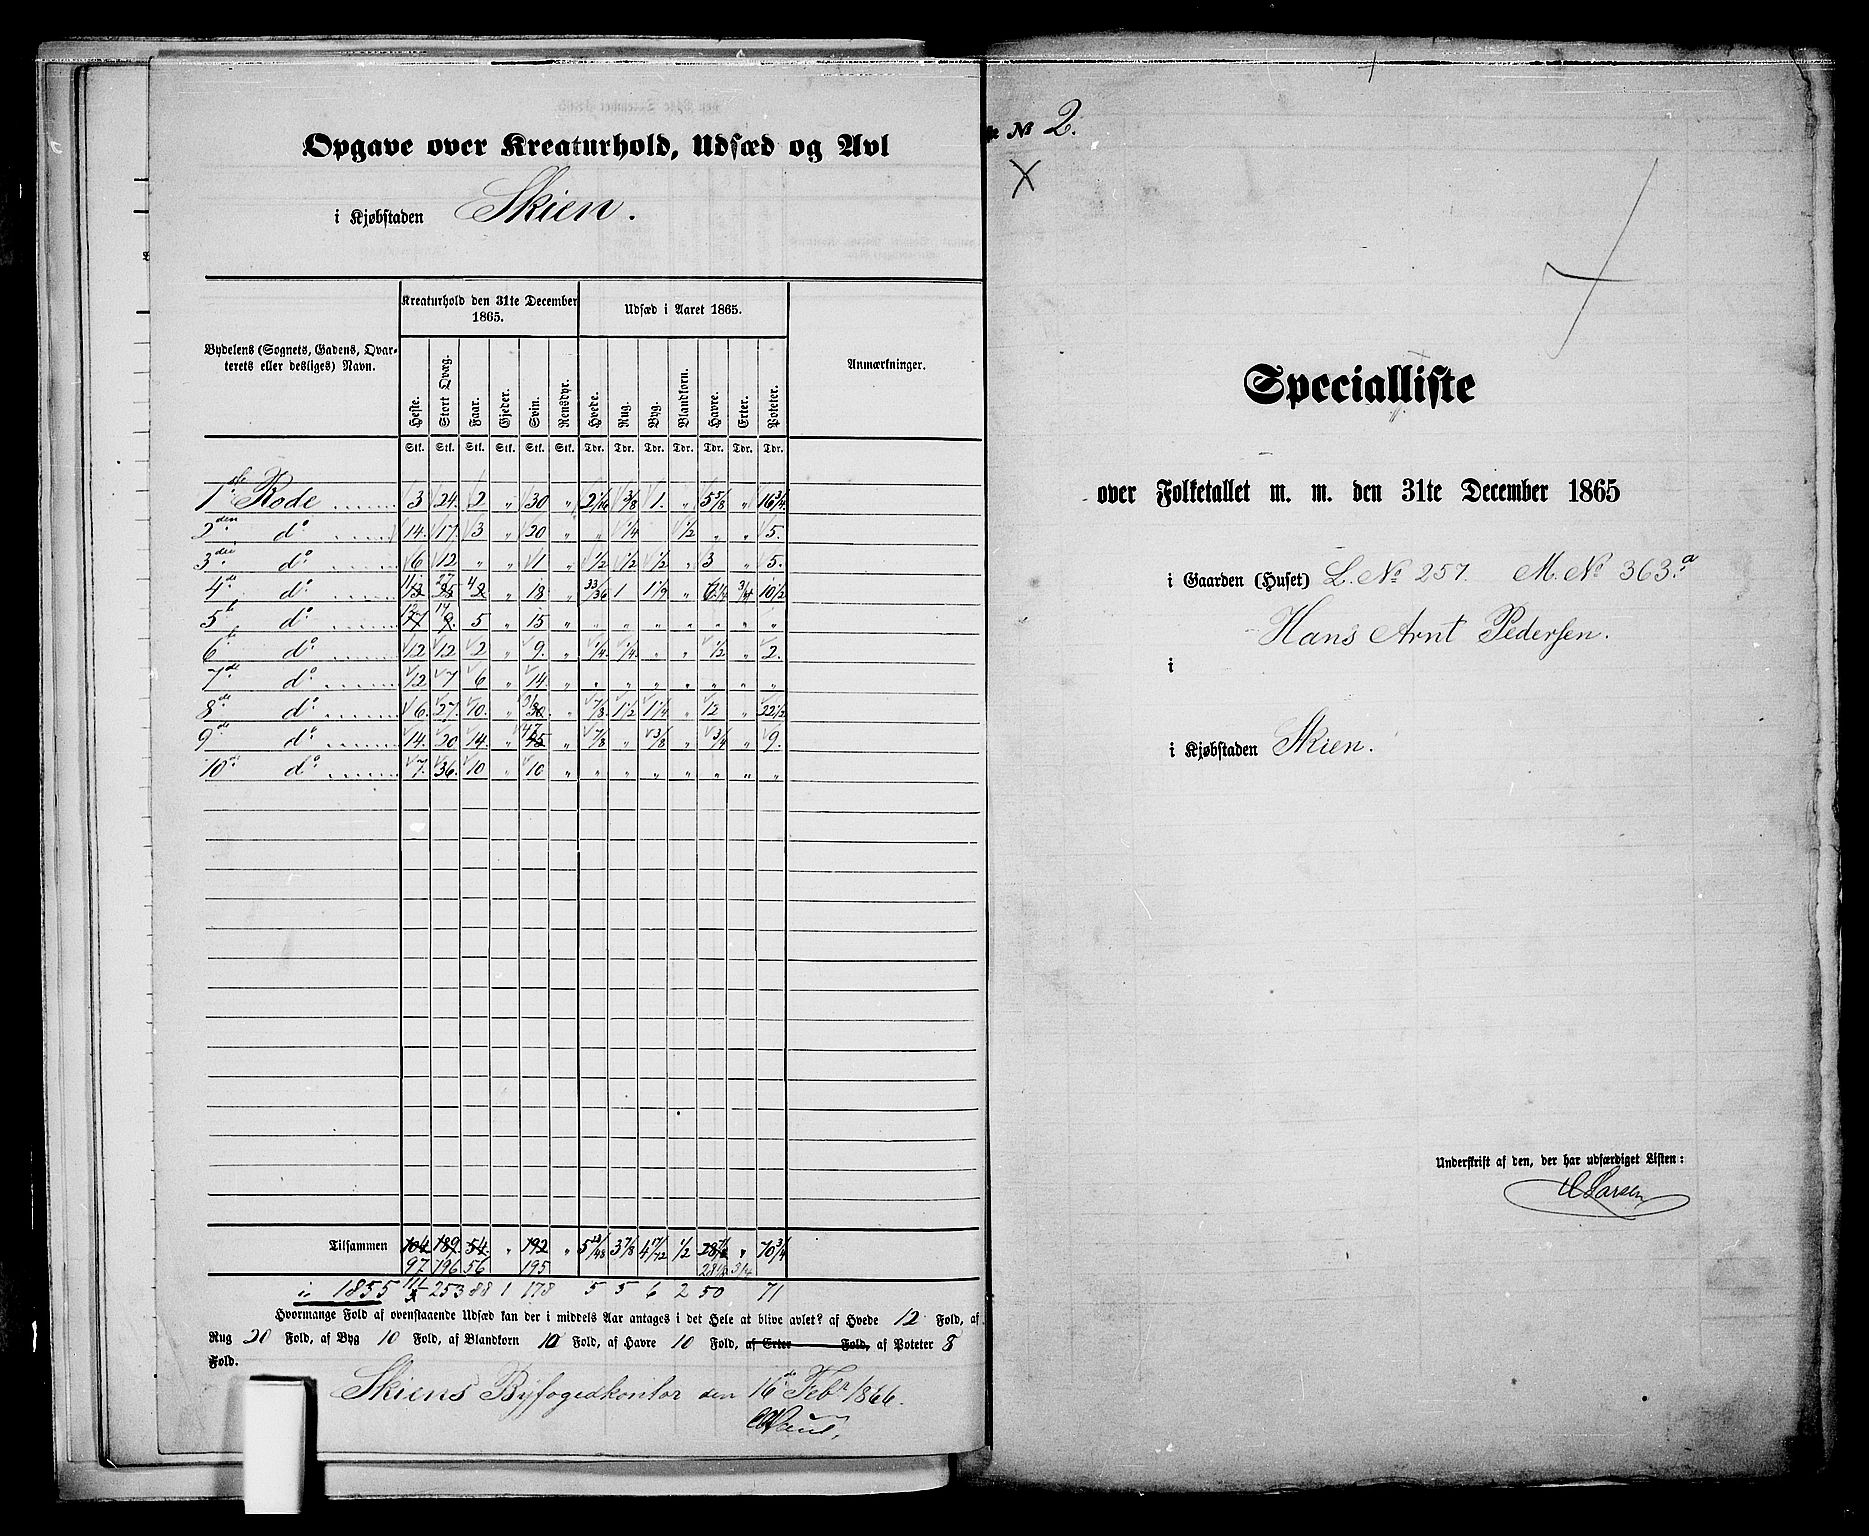 Opgave over Kreaturhold, Udsæd og Avl
i Kjøbstaden Skien.
Kreaturhold den 31te December 1865.
Udsæd i Aaret 1865.
Bydelens (Sognets, Gadens, Qvarterets eller desliges) Navn.
Anmærkninger.
Heste. Stort Qvæg. Faar. Gjeder. Svin. Rensdyr. Hvede. Rug. Byg. Blandkorn. Havre. Erter. Poteter.
Stk. Stk. Stk. Stk. Stk. Stk. Tdr. Tdr. Tdr. Tdr. Tdr. Tdr. Tdr.
1ste Rode 3 24. 2 " 30 " 2 1/16 3/8 1. " 5 5/8 " 16 3/4.
2den do 14. 17. 3 " 20 " " 1/4 1/2 " " 5.
3die do 6 12 " " 1 " 1/2 1/2 1/2 " 3 " 5.
4de do 27 4 " 18 " 33/36 1 1 1/9 " 6 1/2 3/4 10 1/2
5te do 12 14 5 " 15 " " " " " " " "
6te do 12 12 2 " 9. " 1/4. 1/4. " " 1/2 " 2.
7de do 12 7 6 " 14. " " " " " " " "
8de do 6. 27. 10. " 31 " 7/8. 1 1/2 1 1/4 " 12 " 22 1/2
9de do 14. 20 14. " 47 " 7/8 " 3/8 " 3/4 " 9.
10de do 7. 36. 10 " 10 " " " " " " " "
Tilsammen 104 189 54. " 192 " 5 13/48 3 7/8 4 17/72 1/2 28 7/8 " 70 3/4
97 196 56 195 28 1/8 3/4
i 1855 111 253 88 1 178 5 5 6 2 50 71
Hvormange Fold af ovenstaaende Udsæd kan der i middels Aar antages i det Hele at blive avlet? af Hvede 12 Fold, af
Rug 20 Fold, af Byg 10 Fold, af Blandkorn 10 Fold, af Havre 10 Fold, af Erter Fold, af Poteter 8
Fold.
Skiens Byfogedkontor den 16de Febr 1866.
No 2.
X
Specialliste
over Folketallet m. m. den 31te December 1865
i Gaarden (Huset) L. No 257. M. No 363.a
Hans Arnt Pedersen.
i
i Kjøbstaden Skien.
Underskrift af den, der har udfærdiget Listen:
Larsen